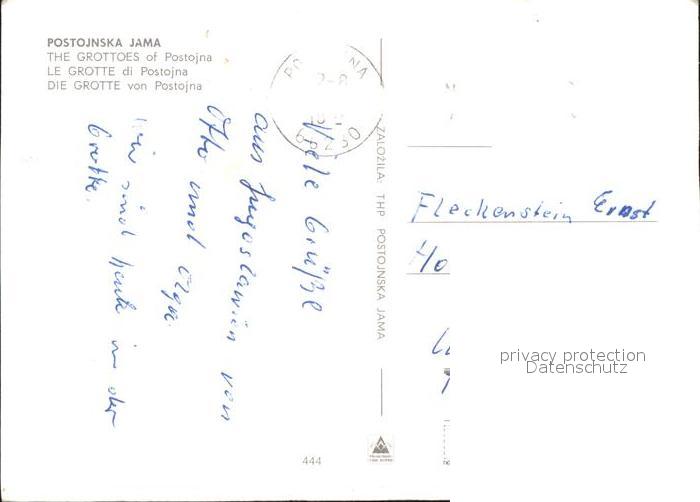 POSTOJNSKA JAMA
THE GROTTOES of Postojna
LE GROTTE di Postojna
DIE GROTTE von Postojna
Viele Grüße
aus Jugoslawien von
Otto und Olga.
Wir sind heute in der
Grotte.
66230
ZALOŽILA: THP POSTOJNSKA JAMA
Fleckenstein Ernst
Ho
privacy protection
Datenschutz
444